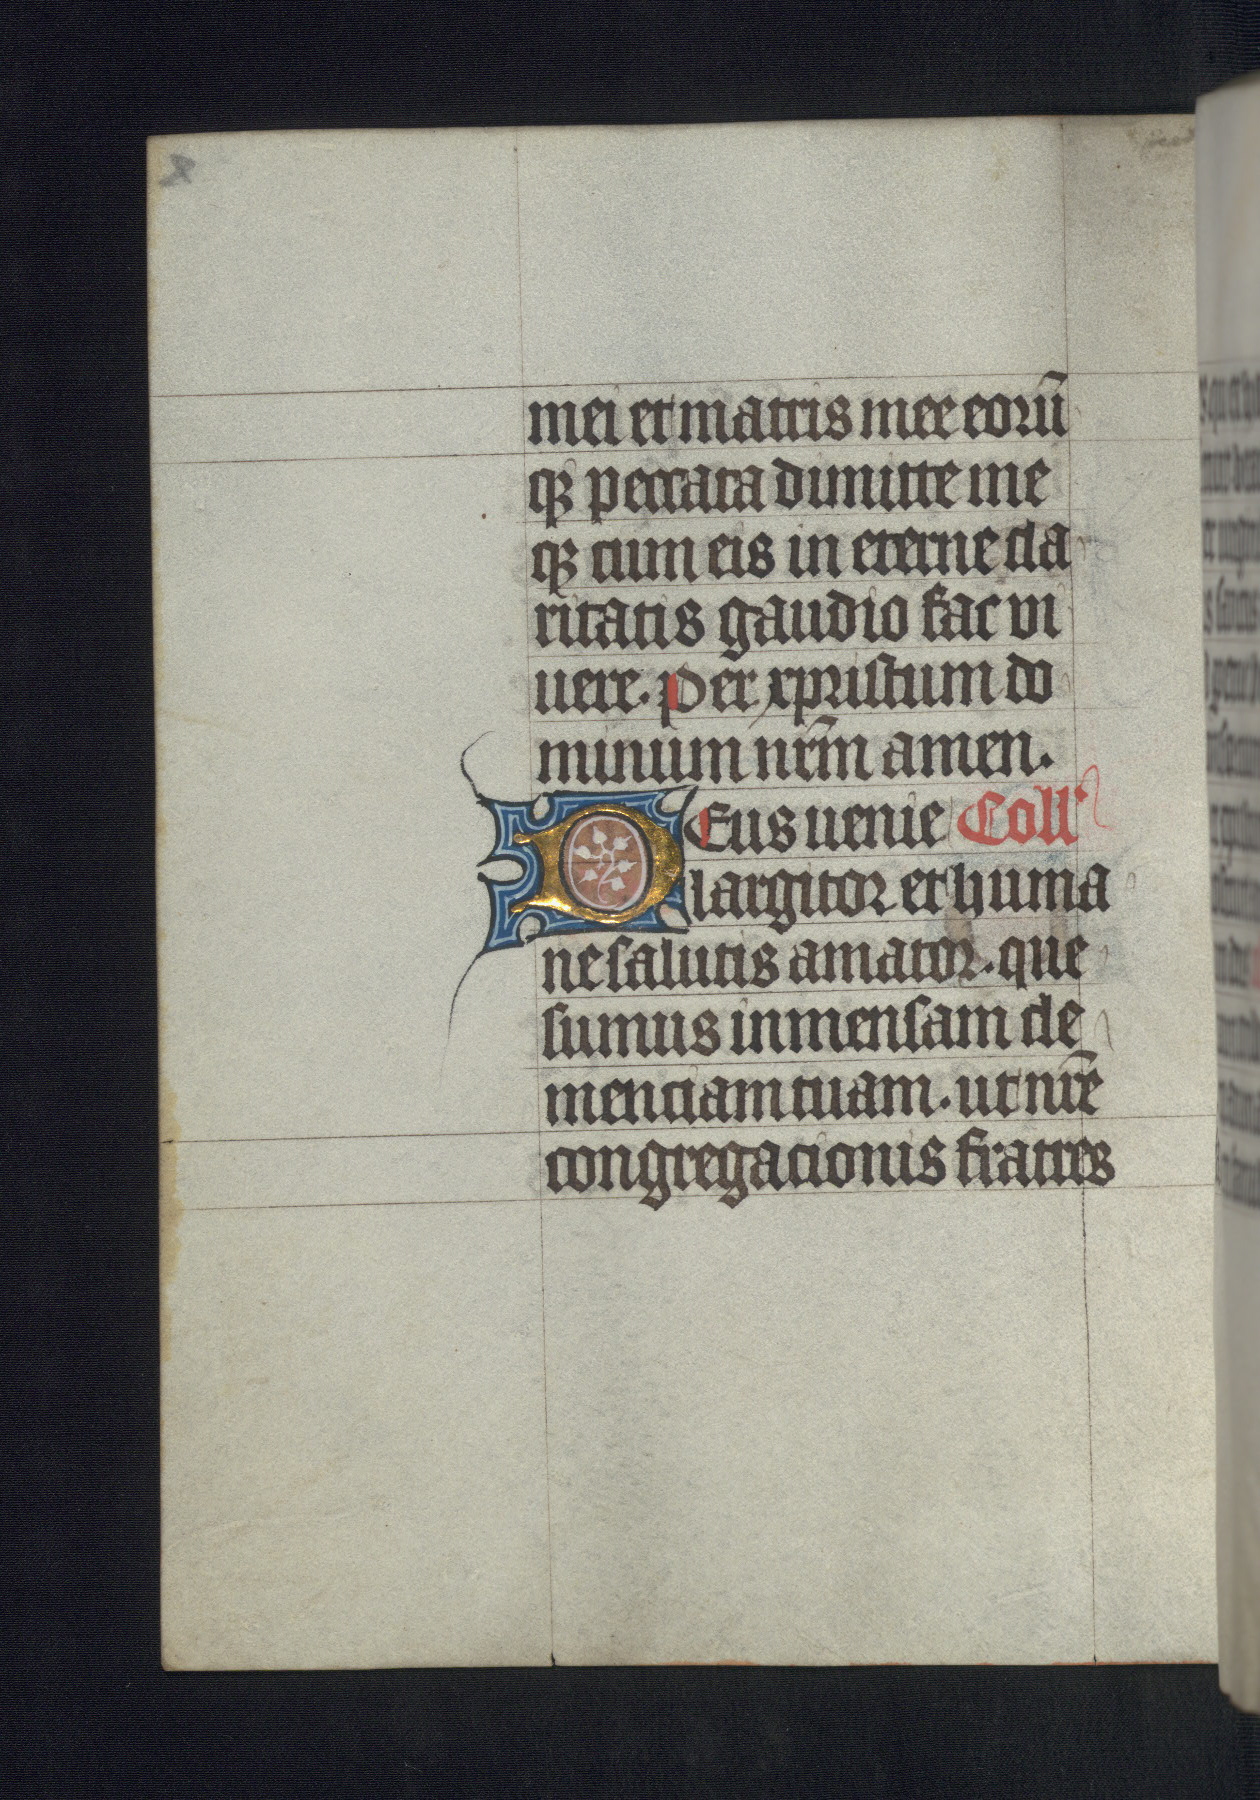 mei et matris mee eorū
qꝫ peccata dimitte me
qꝫ cum eis in eterne cla
ritatis gaudio fac vi
uere. Per xpristum do
minum nr̄m amen.
DEus uenie Coll'
largitor et huma
ne salutis amator. que
sumus inmensam cle
menciam tuam. ut nr̄e
congregacionis fratres